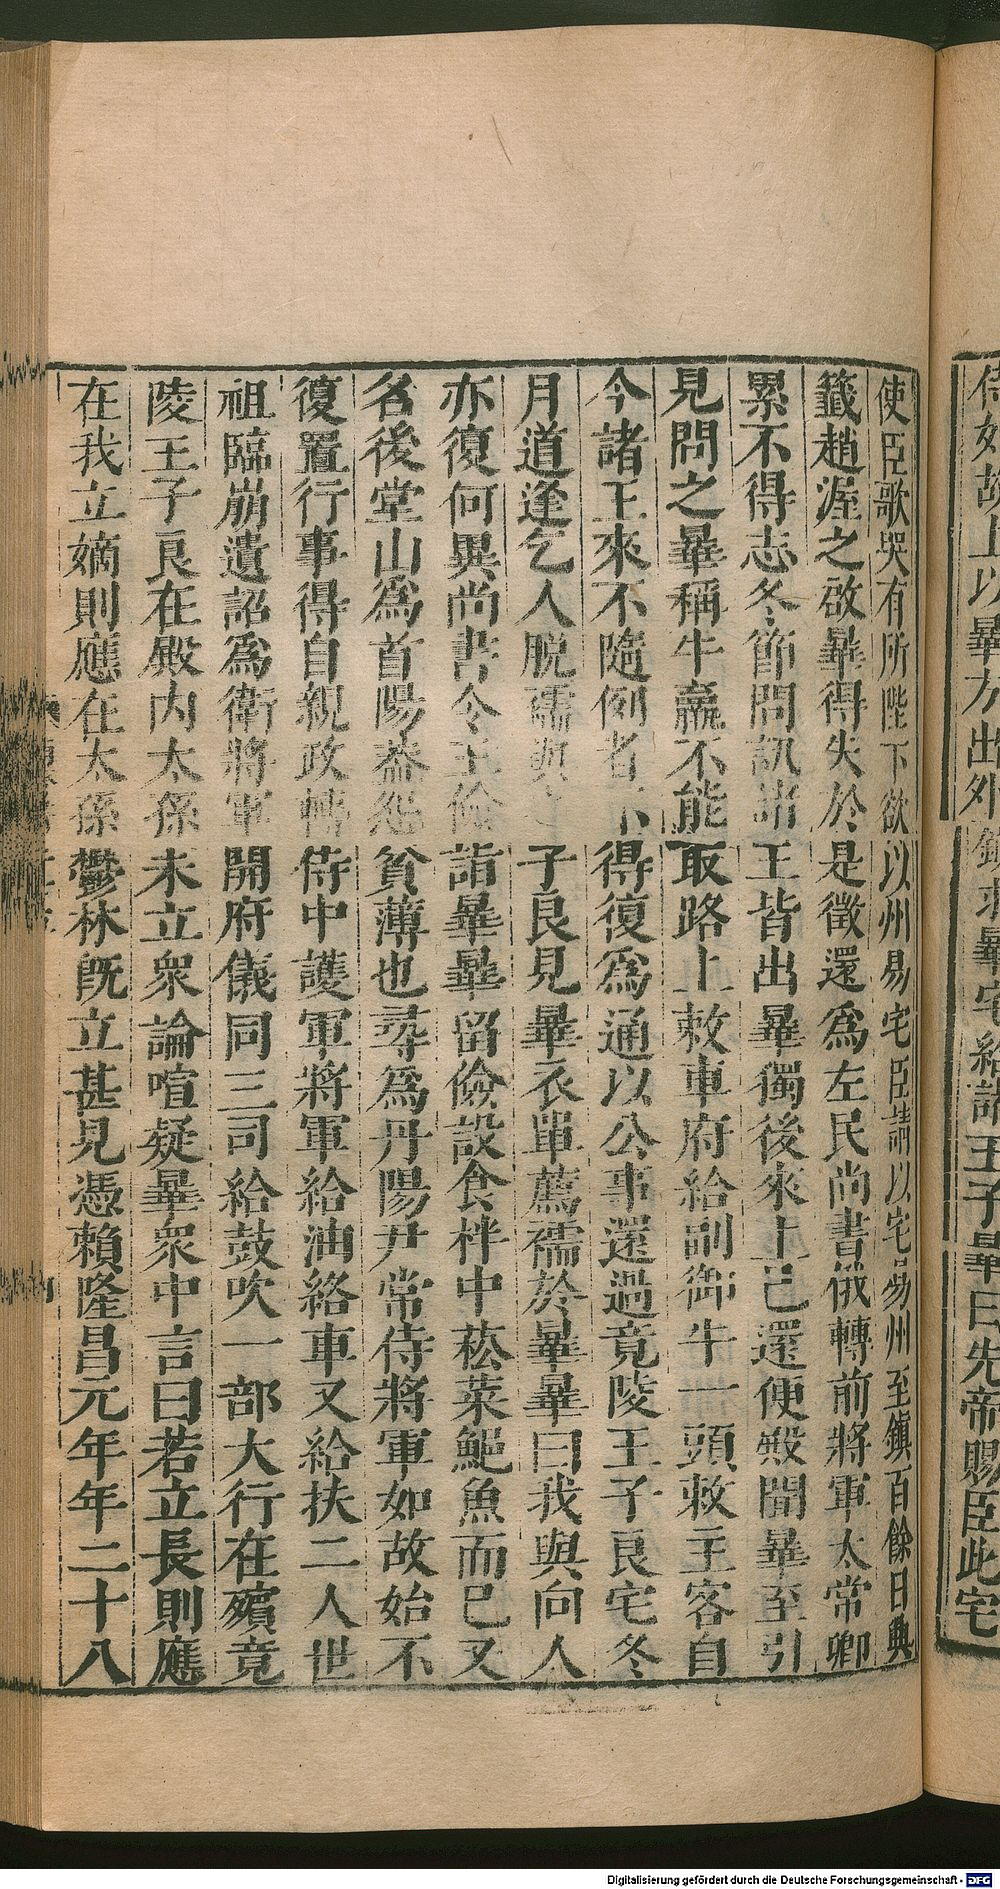 侍如故上以曅方出外鎮求曅宅給諸王子曅曰先帝賜臣此宅
使臣歌哭有所陛下欲以州易宅臣請以宅易州至鎮百餘日典
籤趙渥之啟曅得失於是徵還爲左民尚書俄轉前將軍太常卿
累不得志冬節問訊諸王皆出曅獨後來上已還便殿聞曅至引
見問之曅稱牛羸不能取路上敕車府給副御牛一頭敕主客自
今諸王來不隨例者不得復爲通以公事還過竟陵王子良宅冬
月道逢乞人脫襦與之子良見曅衣單薦襦於曅曅曰我與向人
亦復何異尚書令王儉詣曅曅留儉設食柈中菘菜鮑魚而已又
名後堂山爲首陽葢怨貧薄也尋爲丹陽尹常侍將軍如故始不
復置行事得自親政轉侍中護軍將軍給油絡車又給扶二人世
祖臨崩遺詔爲衛將軍開府儀同三司給鼓吹一部大行在殯竟
陵王子良在殿內太孫未立衆論喧疑曅衆中言曰若立長則應
在我立嫡則應在太孫鬱林旣立甚見憑賴隆昌元年年二十八
Digitalisierung gefördert durch die Deutsche Forschungsgemeinschaft - DFG